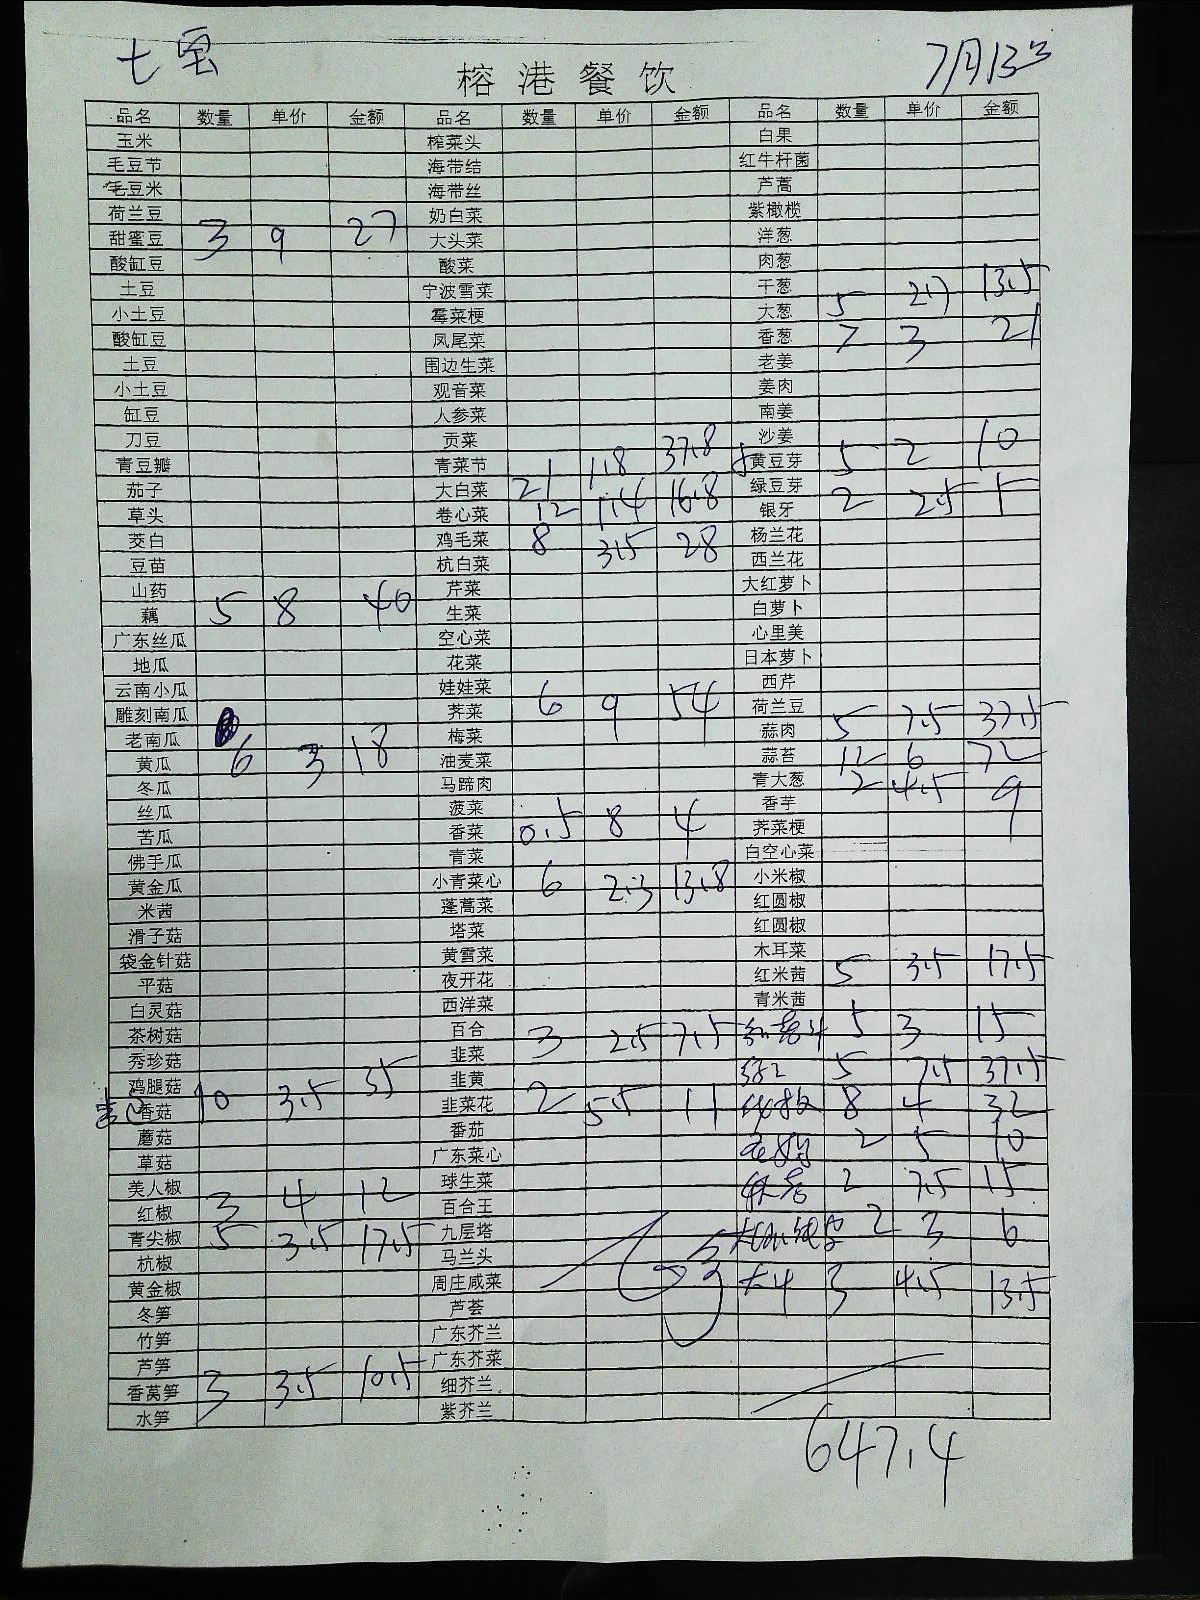 七宝 7月13号
榕港餐饮
品名 数量 单价 金额 品名 数量 单价 金额 品名 数量 单价 金额
玉米 榨菜头 白果
毛豆节 海带结 红牛杆菌
毛豆米 海带丝 芦蒿
荷兰豆 奶白菜 紫橄榄
甜蜜豆 3 9 27 大头菜 洋葱
酸缸豆 酸菜 肉葱
土豆 宁波雪菜 干葱
小土豆 霉菜梗 大葱 5 2.7 13.5
酸缸豆 凤尾菜 香葱 7 3 21
土豆 围边生菜 老姜
小土豆 观音菜 姜肉
缸豆 人参菜 南姜
刀豆 贡菜 沙姜
青豆瓣 青菜节 黄豆芽 5 2 10
茄子 大白菜 21 1.8 37.8 绿豆芽
草头 卷心菜 12 1.4 16.8 银牙 2 2.5 5
茭白 鸡毛菜 8 3.5 28 杨兰花
豆苗 杭白菜 西兰花
山药 芹菜 大红萝卜
藕 5 8 40 生菜 白萝卜
广东丝瓜 空心菜 心里美
地瓜 花菜 日本萝卜
云南小瓜 娃娃菜 6 9 54 西芹
雕刻南瓜 荠菜 荷兰豆
老南瓜 梅菜 蒜肉 5 7.5 37.5
黄瓜 6 3 18 油麦菜 蒜苔 12 6 72
冬瓜 马蹄肉 青大葱 2 4.5 9
丝瓜 菠菜 香芋
苦瓜 香菜 0.5 8 4 荠菜梗
佛手瓜 青菜 白空心菜
黄金瓜 小青菜心 6 2.3 13.8 小米椒
米茜 蓬蒿菜 红圆椒
滑子菇 塔菜 红圆椒
袋金针菇 黄雪菜 木耳菜
平菇 夜开花 红米茜 5 3.5 17.5
白灵菇 西洋菜 青米茜
茶树菇 百合 3 2.5 7.5 5 3 15
秀珍菇 韭菜
鸡腿菇 韭黄 5 7.5 37.5
香菇 10 3.5 35 韭菜花 2 5.5 11 8 4 32
蘑菇 番茄
草菇 广东菜心 2 5 10
美人椒 球生菜 2 7.5 15
红椒 3 4 12 百合王
青尖椒 5 3.5 17.5 九层塔 2 3 6
杭椒 马兰头
黄金椒 周庄咸菜 3 4.5 13.5
冬笋 芦荟
竹笋 广东芥兰
芦笋 广东芥菜
香莴笋 3 3.5 10.5 细芥兰
水笋 紫芥兰
647.4